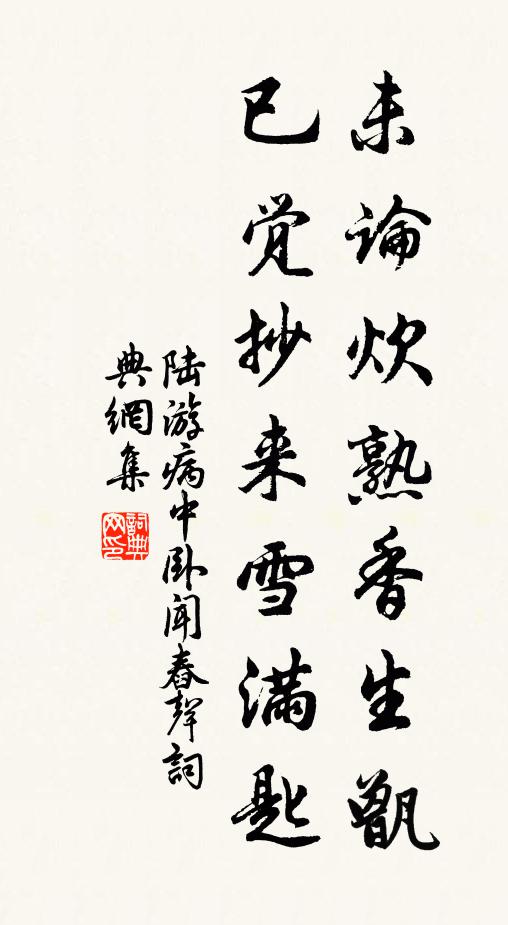 未論炊熟香生甑
已觉抄来雪满匙
陆游病中卧闻舂聲詞
典網集
詞典
网印